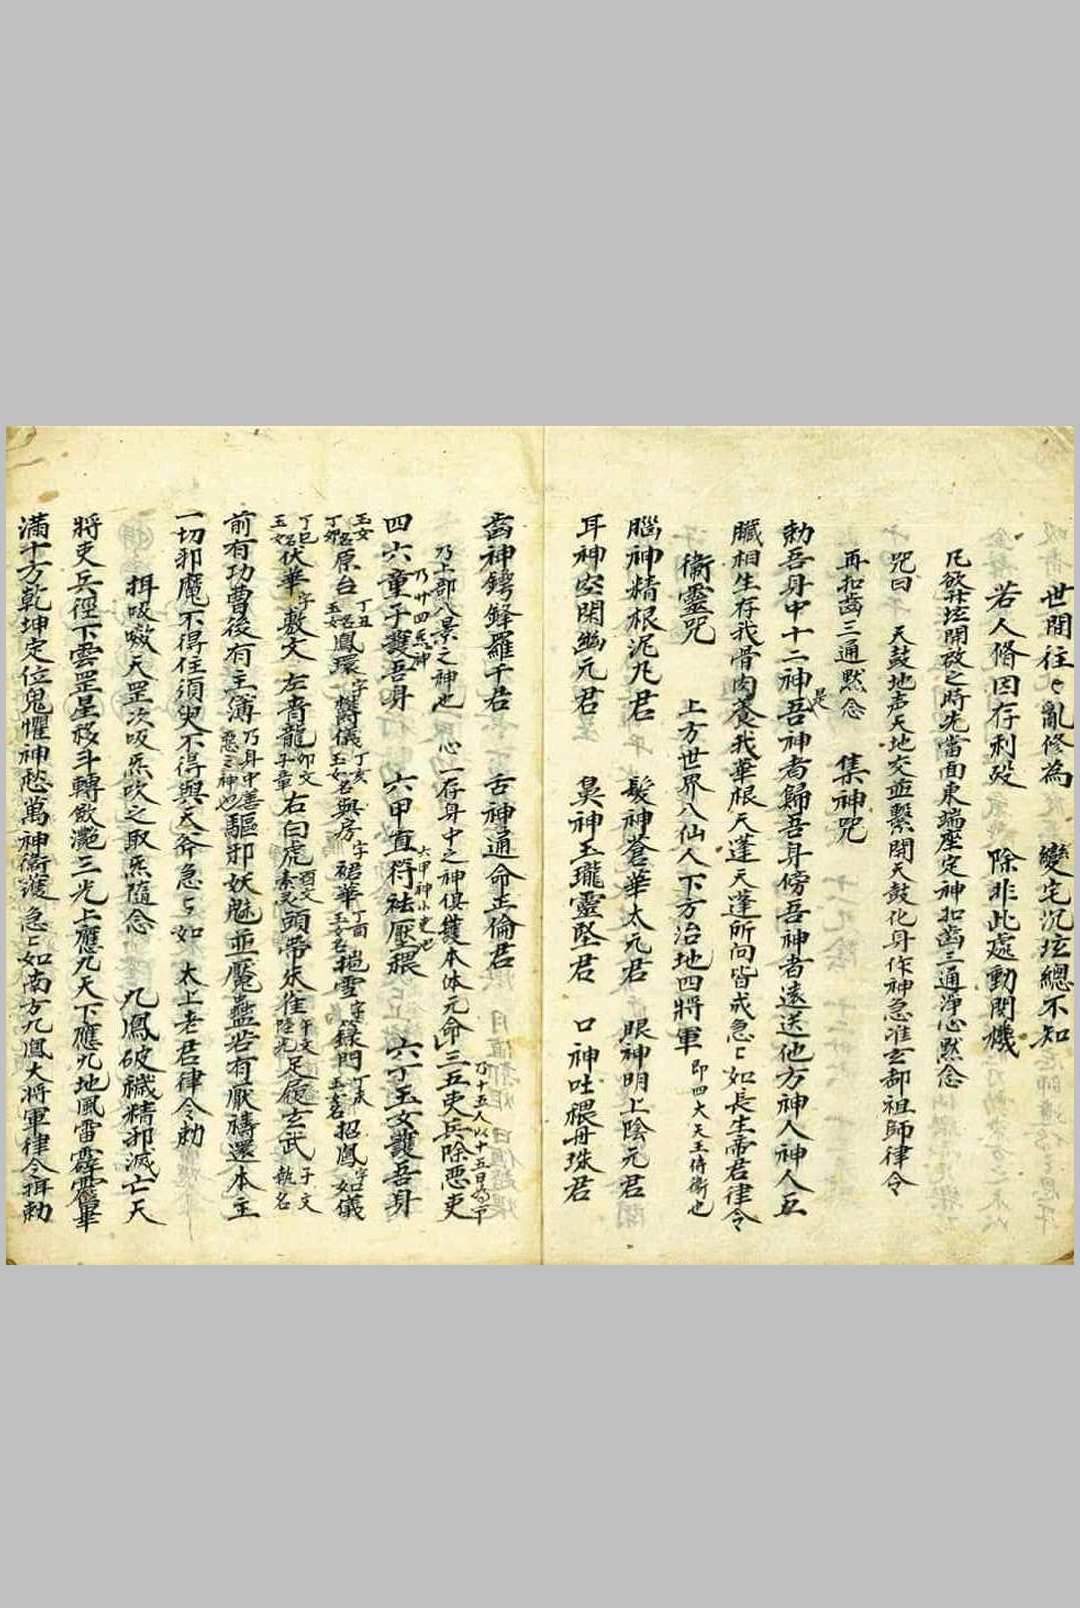 世間往〻亂修為　變宅沉玹總不知
若人脩因存利殁　除非此處動関機
凡欲升坛開啟之時先當面東端座定神扣齒三通净心默念
咒曰　天鼓地声天地交並繫開天鼓化身作神急准玄都祖師律令
再扣齒三通默念　集神咒
勅吾身中十二神是吾神者歸吾身傍吾神者遠送他方神人神人五
臟相生存我骨肉養我華根天蓬天蓬所向皆戎急〻如長生帝君律令
衛靈咒　上方世界八仙人下方治地四將軍 即四大天王侍衛也
腦神精根泥丸君　髮神蒼華太元君　眼神明上陰元君
耳神空閑幽元君　鼻神玉瓏靈堅君　口神吐穢丹珠君
齒神鍔鋒羅千君　舌神通命正倫君
乃上部八景之神也　心一存身中之神俱護本体元命 三五吏兵除惡吏 乃十五人以十五日為平
四六童子護吾身 乃廿四炁神　六甲直符祛壓穢 六甲神小吏也　六丁玉女護吾身
玉女丁卯名原台 丁丑玉女名鳳環字鬱儀 丁亥玉女名與房字裙華 丁酉玉女名抱雪字録門 丁未玉女名招鳳字如儀
丁巳玉女名伏華字敷文 左青龍 卯文子章 右白虎 酉文素灵 頭帶朱雀 午文陵光 足履玄武 子文執名
前有功曹後有主簿 乃身中善惡之神也 驅邪妖魅並魘蠱若有厭禱還本主
一切邪魔不得住須臾不得與天斧急〻如　太上老君律令勅
揖吸嗷天罡次収炁吹之取炁隨念　九鳳破穢精邪滅亡天
將吏兵徑下雲罡星移斗轉歛灔三光上應九天下應九地風雷霹靂畢
滿十方乾坤定位鬼懼神愁萬神衛護急〻如南方九鳳大將軍律令揖勅